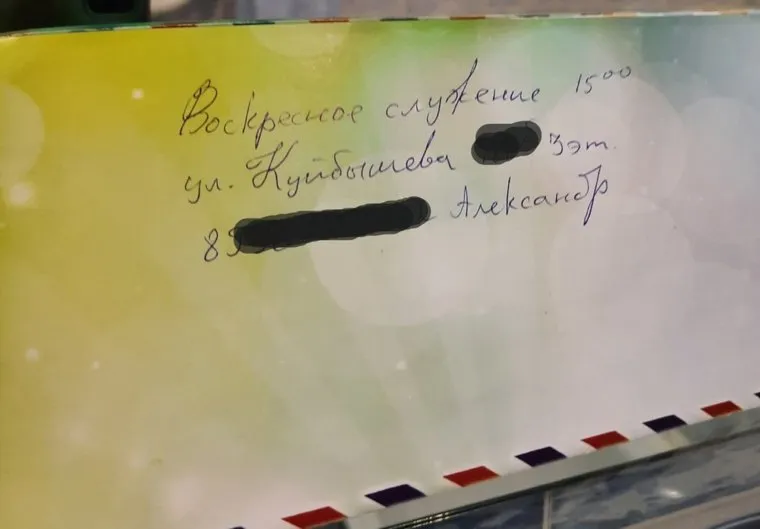 Воскресное служение 15⁰⁰
ул. Куйбышева 3 эт.
89 Александр